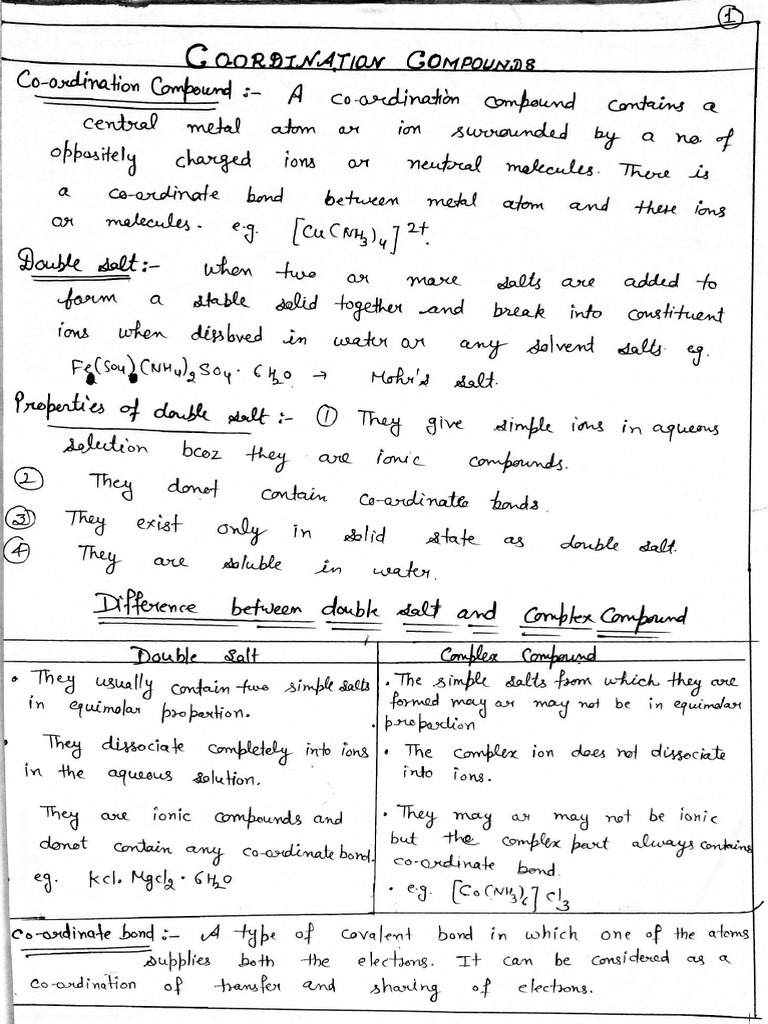 1
COORDINATION COMPOUNDS
Co-ordination Compound :- A co-ordination compound contains a
central metal atom or ion surrounded by a no. of
oppositely charged ions or neutral molecules. There is
a co-ordinate bond between metal atom and these ions
or molecules. e.g. [Cu(NH3)4]2+.
Double salt :- When two or more salts are added to
form a stable solid together and break into constituent
ions when dissolved in water or any solvent salts. eg.
Fe(SO4)(NH4)2SO4·6H2O → Mohr's salt.
Properties of double salt :- ① They give simple ions in aqueous
solution bcoz they are ionic compounds.
② They donot contain co-ordinate bonds.
③ They exist only in solid state as double salt.
④ They are soluble in water.
Difference between double salt and Complex Compound
Double salt
• They usually contain two simple salts
in equimolar proportion.
• They dissociate completely into ions
in the aqueous solution.
They are ionic compounds and
donot contain any co-ordinate bond.
eg. KCl. MgCl2·6H2O
Complex Compound
• The simple salts from which they are
formed may or may not be in equimolar
proportion
• The complex ion does not dissociate
into ions.
• They may or may not be ionic
but the complex part always contains
co-ordinate bond.
• e.g. [Co(NH3)6]Cl3
Co-ordinate bond :- A type of covalent bond in which one of the atoms
supplies both the electrons. It can be considered as a
co-ordination of transfer and sharing of electrons.